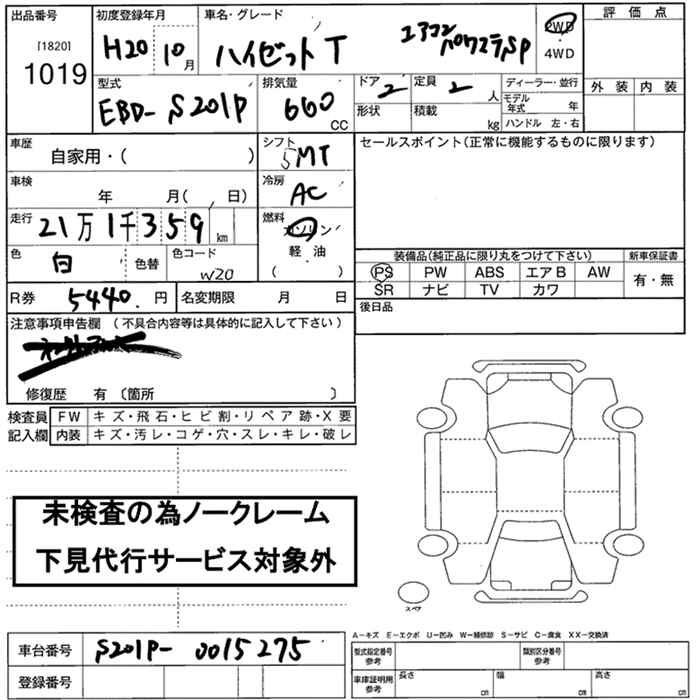 出品番号 初度登録年月 車名・グレード 評価点
[1820]
1019
H20 10月 ハイゼットT エアコン パワステ,SP 2WD
4WD
型式 排気量 ドア 定員 ディーラー・並行 外装 内装
EBD-S201P 660 CC 2 2人 モデル年式 年
形状 積載 kg ハンドル 左・右
車歴 自家用・( ) シフト 5MT セールスポイント(正常に機能するものに限ります)
車検 年 月( 、 日) 冷房 AC
走行 21万1千359km 燃料 ガソリン
軽油
( )
色 白 色替 色コード W20
装備品(純正品に限り丸をつけて下さい) 新車保証書
PS PW ABS エアB AW 有・無
SR ナビ TV カワ
R券 5440.円 名変期限 月 日
後日品
注意事項申告欄 (不具合内容等は具体的に記入して下さい)
修復歴 有 〔箇所 〕
検査員 FW キズ・飛石・ヒビ割・リペア跡・X要
記入欄 内装 キズ・汚レ・コゲ・穴・スレ・キレ・破レ
未検査の為ノークレーム
下見代行サービス対象外
スペア
A-キズ E-エクボ U-凹み W-補修跡 S-サビ C-腐食 XX-交換済
車台番号 S201P-0015275
型式指定番号 参考 類別区分番号 参考
登録番号
車庫証明用 参考 長さ cm 幅 cm 高さ cm